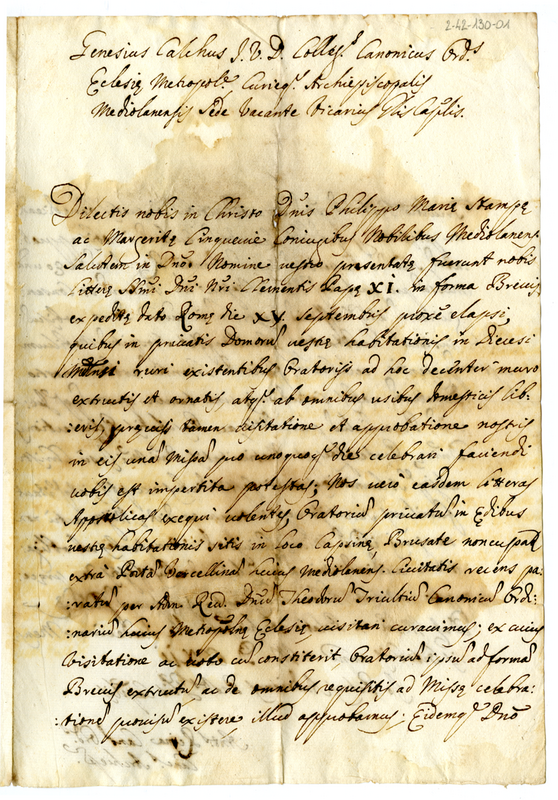 2-42-130-01
Genesius Calchus J. V. D. Colleg.s Canonicus Ord.s
Eclesię Metropol.ę Curięq. Archiepiscopalis
Mediolanensis Sede Vacante Vicarius Gñlis Cap̃lis.
Dilectis nobis in Christo Dñis Philippo Marię Stampę
ac Margeritę Cinquevie Coniugibus Nobilibus Mediolanens.
Salutem in Dno. Nomine vestro presentatę fuerunt nobis
litterę Sm̃i Dñi Ñri Clementis Papę XI. in forma Brevis
expeditę dato Romę die XV septembris proxẽ elapsi,
quibus in privatis Domorũ vestrę habitationis in Diecesi
ruri existentibus Oratorijs ad hoc decẽnter muro
extructis et ornatis, atq. ab omnibus usibus domesticis lib-
:eris, previis tamen visitatione et approbatione nostris
in eis unã Missã pro unoquoq. die celebrari faciendi
vobis est impertita potestas; Nos vero easdem litteras
App̃licas exequi volentes, Oratoriũ privatũ in Ędibus
vestrę habitationis sitis in loco Capsinę Brusate noncupatẽ
extra Portã Vercellinã huius Mediolanens. Civitatis recens pa-
:ratũ per Adm. Red. Dnũ Theodorũ Triultiũ Canonicũ Ordi-
:nariũ huius Metropol̃nę Eclesię visitari curavimus; ex cuius
Visitatione ac voto cũ constiterit Oratoriũ ipsũ ad formã
Brevis extructũ, ac de omnibus requisitis ad Missę celebra-
:tionẽ provisũ existere illud approbamus; Eidemq. Dño